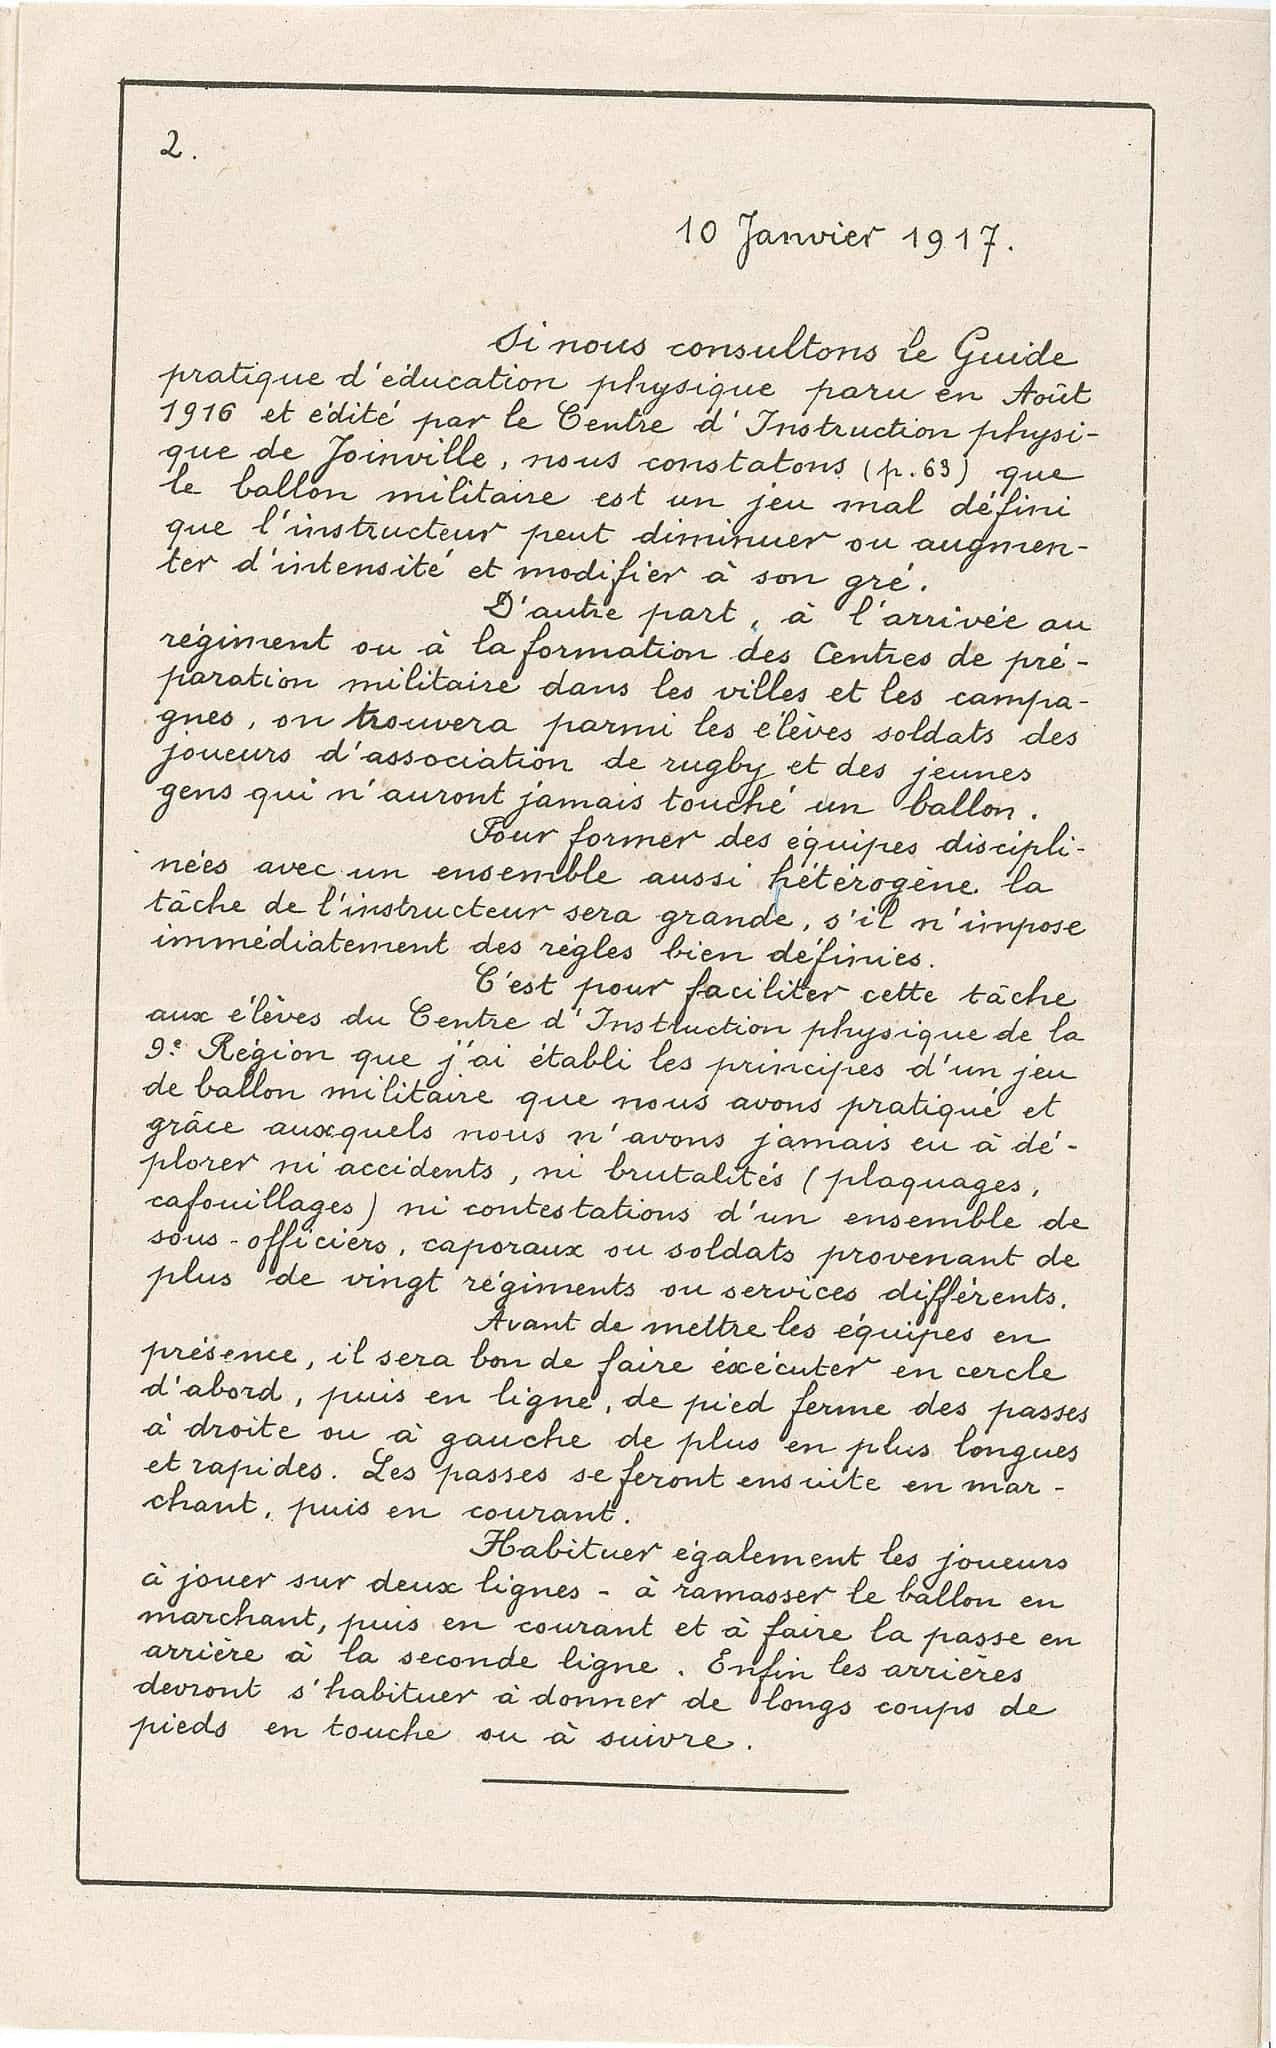 2.
10 Janvier 1917.
Si nous consultons le Guide
pratique d'éducation physique paru en Août
1916 et édité par le Centre d'Instruction physi-
que de Joinville, nous constatons (p. 63) que
le ballon militaire est un jeu mal défini
que l'instructeur peut diminuer ou augmen-
ter d'intensité et modifier à son gré.
D'autre part, à l'arrivée au
régiment ou à la formation des Centres de pré-
paration militaire dans les villes et les campa-
gnes, on trouvera parmi les élèves soldats des
joueurs d'association de rugby et des jeunes
gens qui n'auront jamais touché un ballon.
Pour former des équipes discipli-
nées avec un ensemble aussi hétérogène la
tâche de l'instructeur sera grande, s'il n'impose
immédiatement des règles bien définies.
C'est pour faciliter cette tâche
aux élèves du Centre d'Instruction physique de la
9e Région que j'ai établi les principes d'un jeu
de ballon militaire que nous avons pratiqué et
grâce auxquels nous n'avons jamais eu à dé-
plorer ni accidents, ni brutalités (plaquages,
cafouillages) ni contestations d'un ensemble de
sous-officiers, caporaux ou soldats provenant de
plus de vingt régiments ou services différents.
Avant de mettre les équipes en
présence, il sera bon de faire éxécuter en cercle
d'abord, puis en ligne, de pied ferme des passes
à droite ou à gauche de plus en plus longues
et rapides. Les passes se feront ensuite en mar-
chant, puis en courant.
Habituer également les joueurs
à jouer sur deux lignes - à ramasser le ballon en
marchant, puis en courant et à faire la passe en
arrière à la seconde ligne. Enfin les arrières
devront s'habituer à donner de longs coups de
pieds en touche ou à suivre.